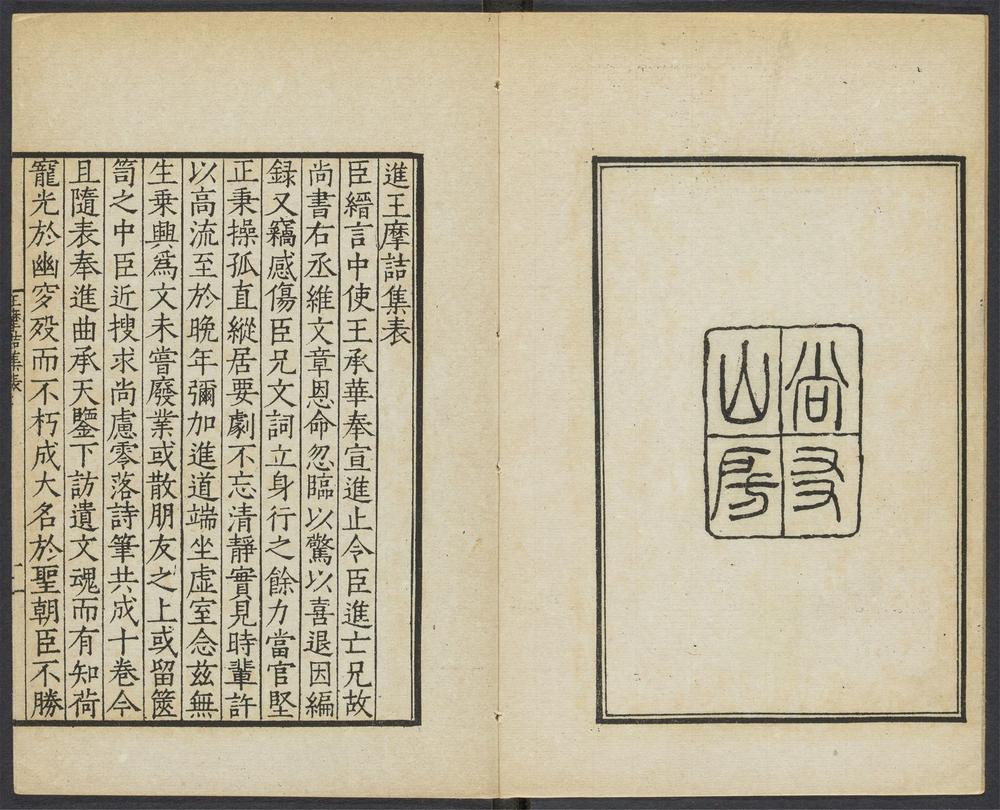 尚友
山房
進王摩詰集表
臣縉言中使王承華奉宣進止令臣進亡兄故
尚書右丞維文章恩命忽臨以驚以喜退因編
録又竊感傷臣兄文詞立身行之餘力當官堅
正秉操孤直縱居要劇不忘清靜實見時輩許
以高流至於晚年彌加進道端坐虛室念兹無
生乗興爲文未甞廢業或散朋友之上或留篋
笥之中臣近搜求尚慮零落詩筆共成十卷今
且隨表奉進曲承天鑒下訪遺文魂而有知荷
寵光於幽穸殁而不朽成大名於聖朝臣不勝
王摩詰集表